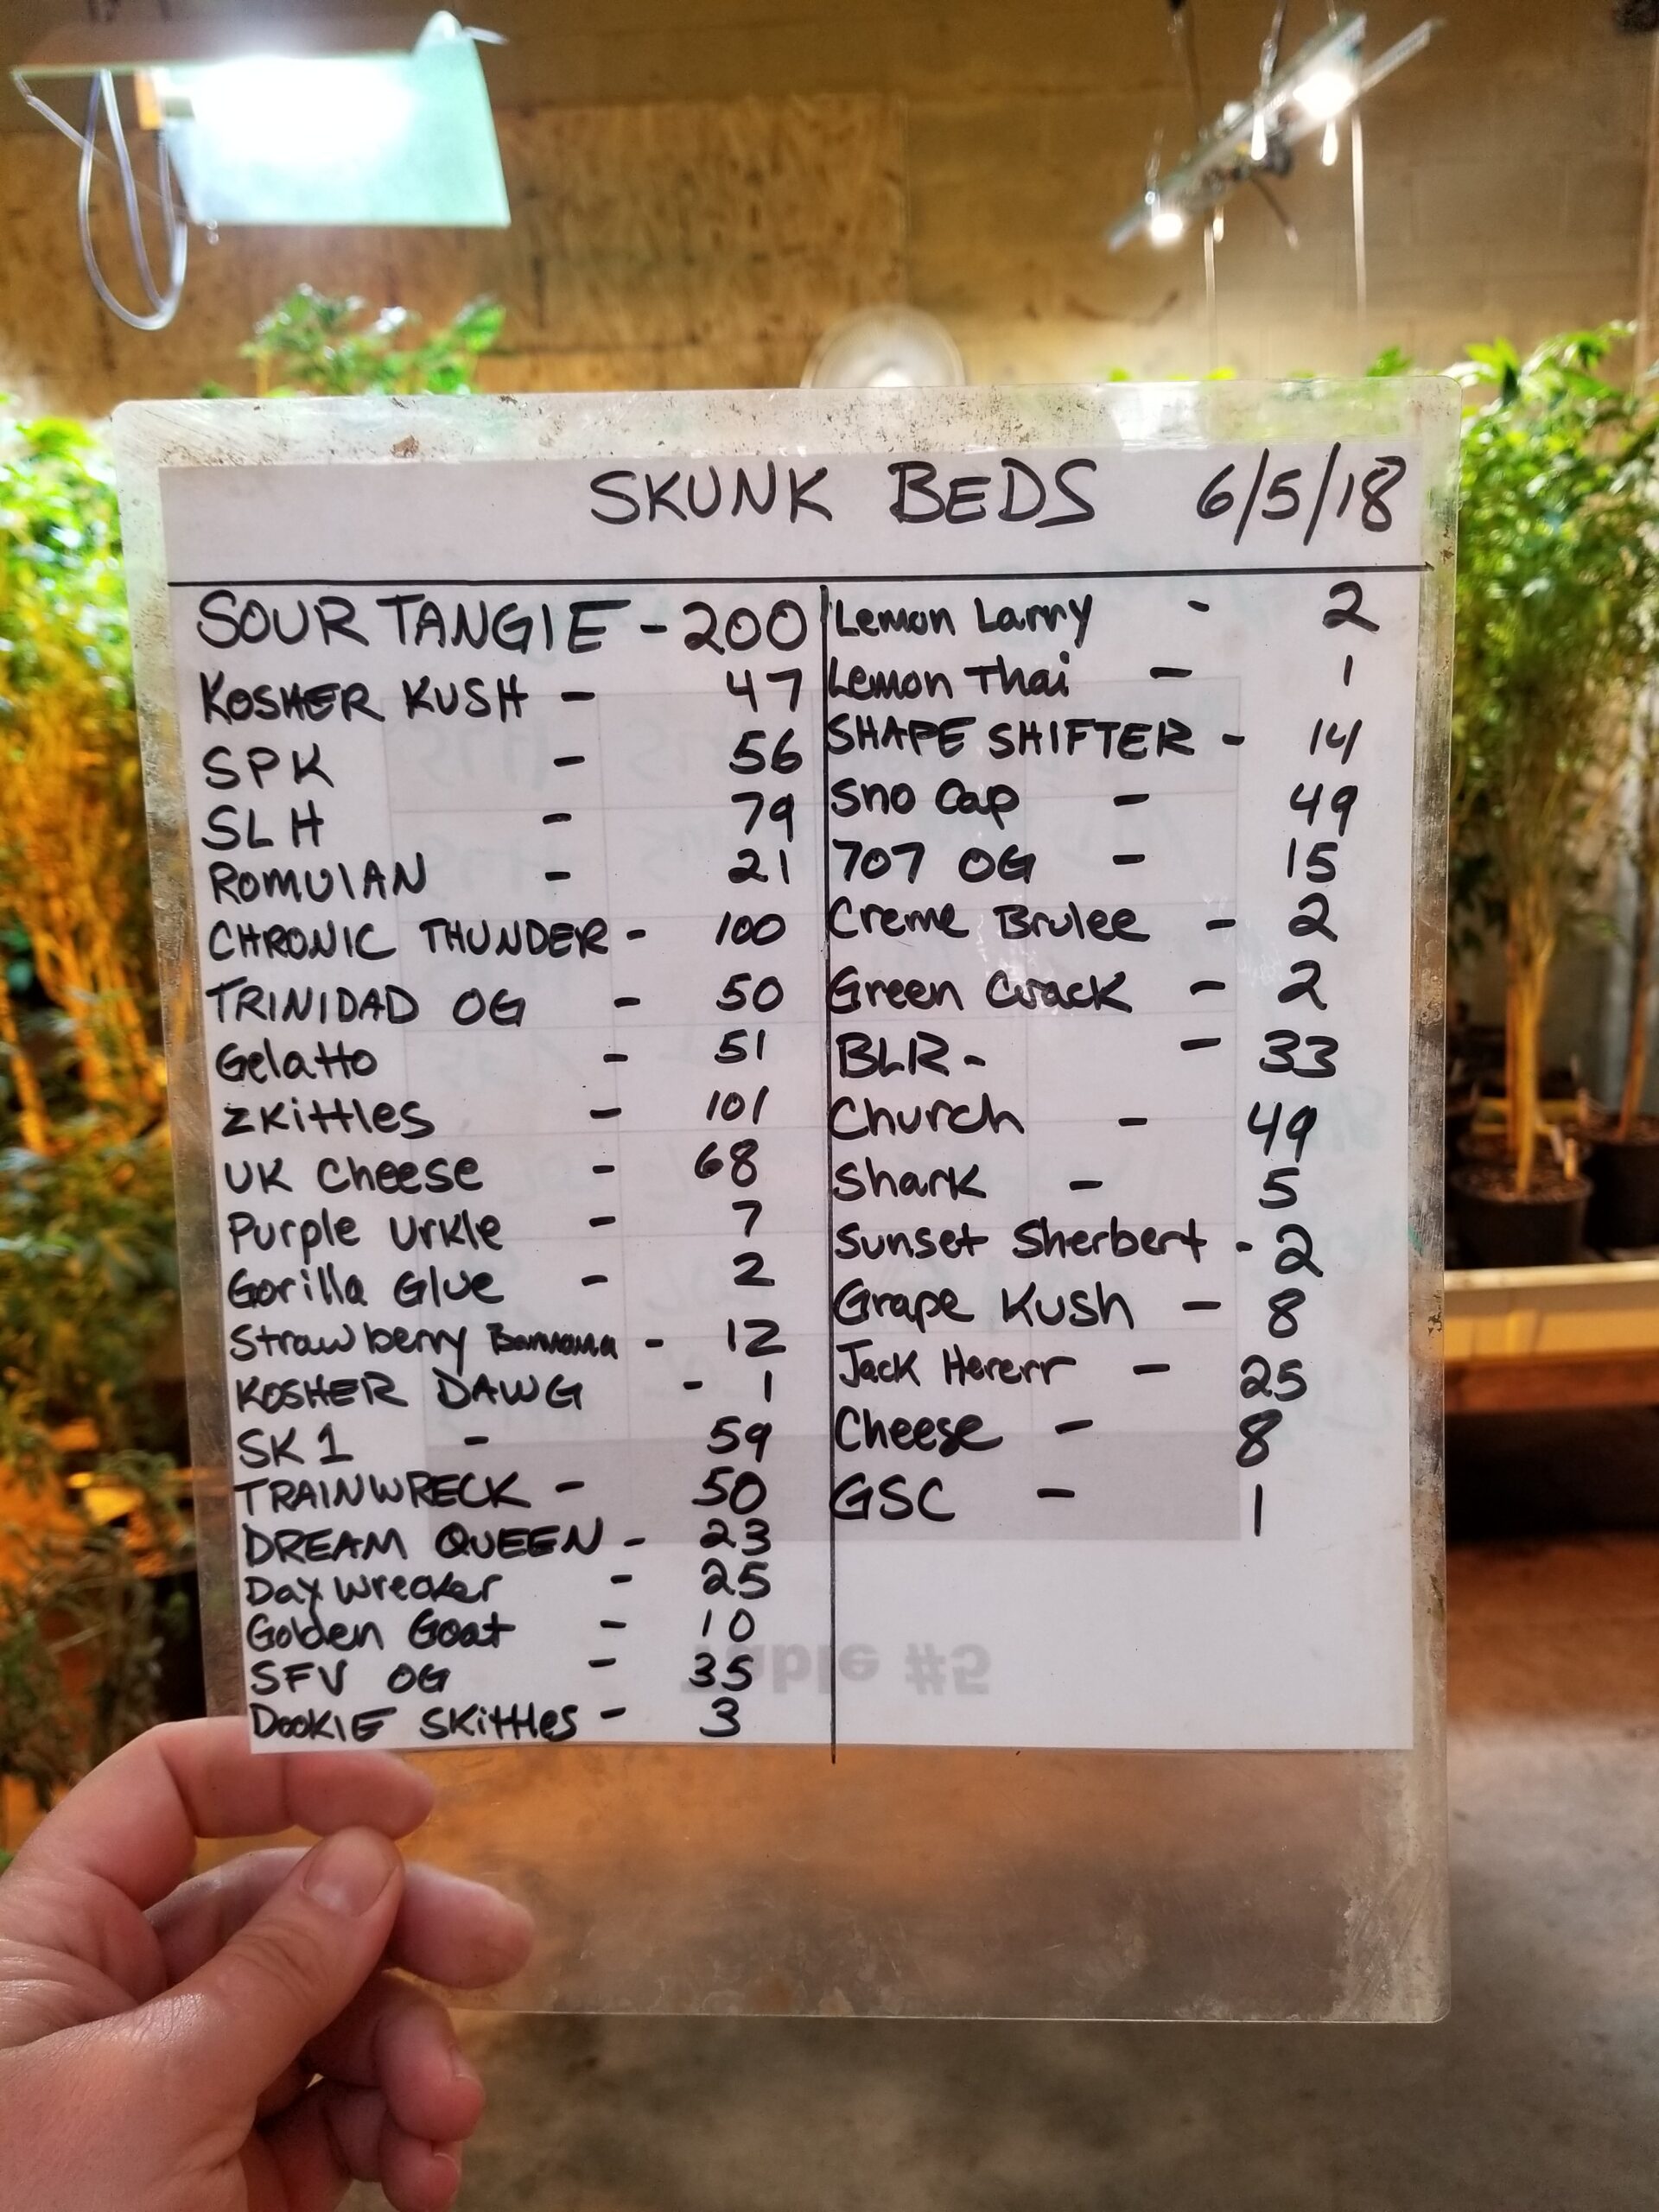 SKUNK BEDS 6/5/18
SOUR TANGIE - 200
KOSHER KUSH - 47
SPK - 56
SLH - 79
ROMULAN - 21
CHRONIC THUNDER - 100
TRINIDAD OG - 50
Gelatto - 51
Zkittles - 101
UK Cheese - 68
Purple Urkle - 7
Gorilla Glue - 2
Strawberry Bannana - 12
KOSHER DAWG - 1
SK1 - 59
TRAINWRECK - 50
DREAM QUEEN - 23
Daywrecker - 25
Golden Goat - 10
SFV OG - 35
DOOKIE SKittles - 3
Lemon Larry - 2
Lemon Thai - 1
SHAPE SHIFTER - 14
Sno Cap - 49
707 OG - 15
Creme Brulee - 2
Green Crack - 2
BLR - - 33
Church - 49
Shark - 5
Sunset Sherbert - 2
Grape Kush - 8
Jack Hererr - 25
Cheese - 8
GSC - 1
Table #5